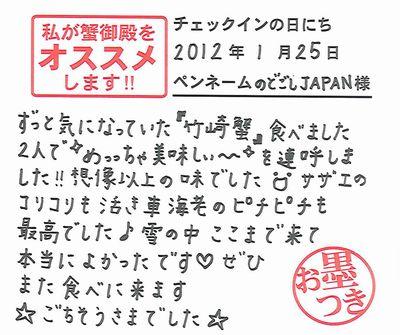 私が蟹御殿を
オススメ
します!!
チェックインの日にち
2012年 1月25日
ペンネームのどごしJAPAN様
ずっと気になっていた『竹崎蟹』食べました
2人で✧めっちゃ美味しい〜✧を連呼しま
した!!想像以上の味でした サザエの
コリコリも活き車海老のピチピチも
最高でした♪雪の中 ここまで来て
本当によかったです♡ぜひ
また食べに来ます
☆ごちそうさまでした☆
お墨つき